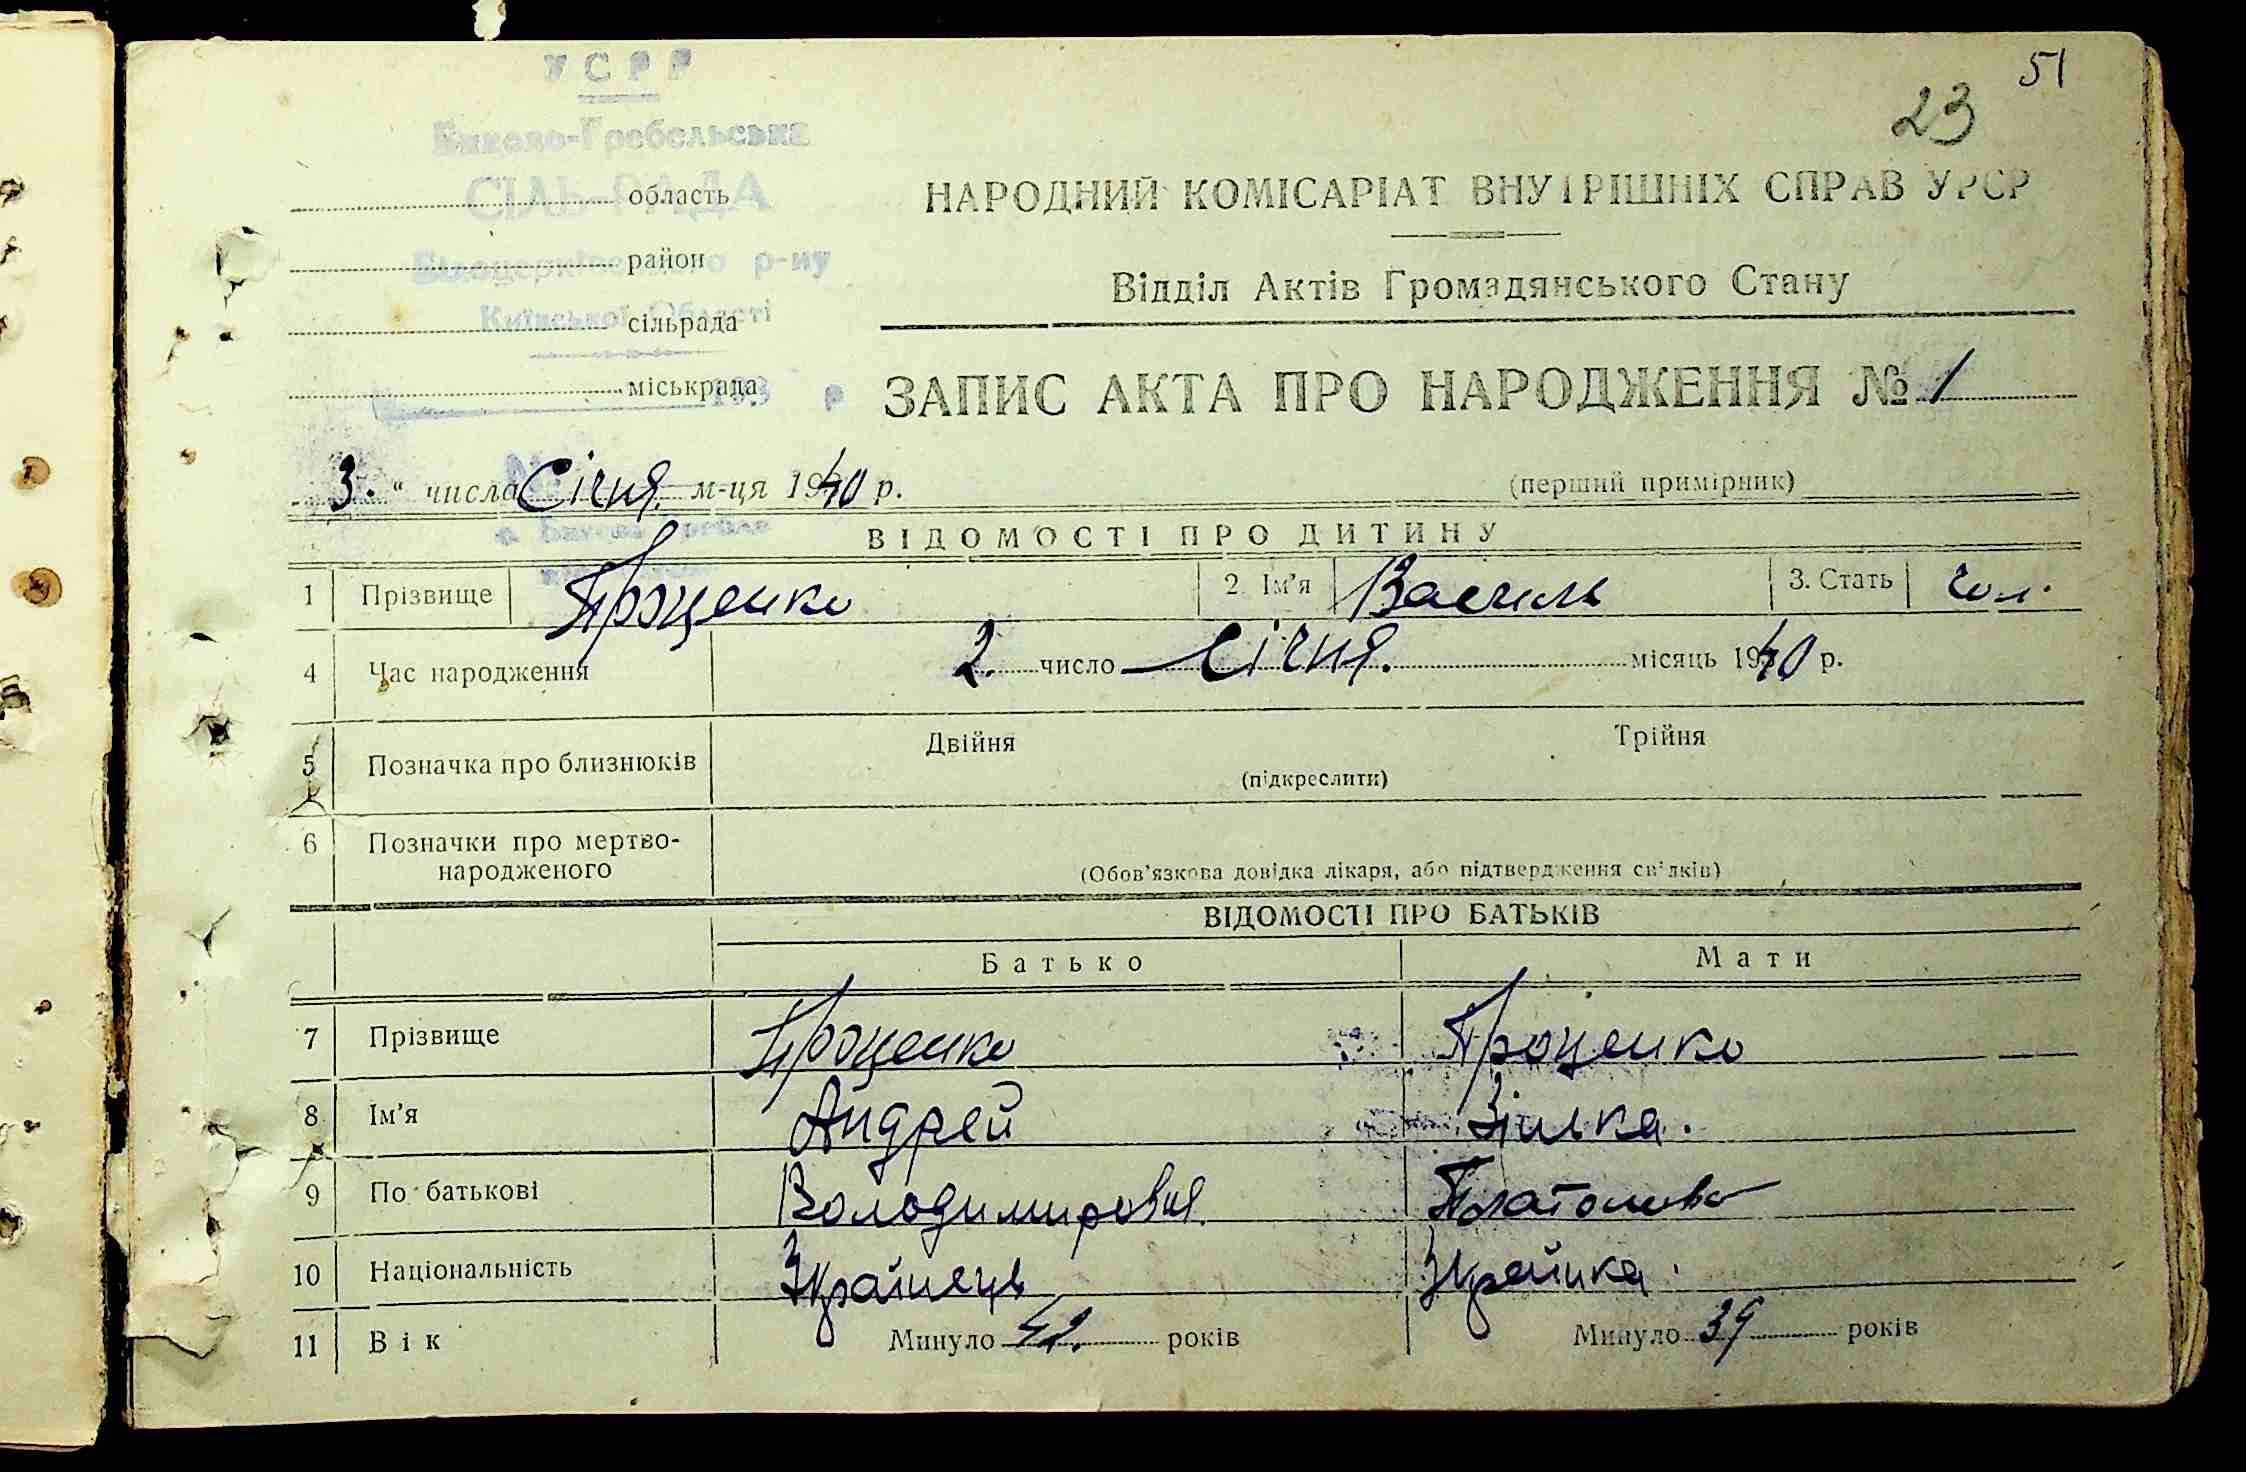 51
23
УСРР
Биково-Гребельська
СІЛЬ-РАДА
область
Білоцерківського р-ну
район
Київської Області
сільрада
міськрада 193 р
НАРОДНИЙ КОМІСАРІАТ ВНУТРІШНІХ СПРАВ УРСР
Відділ Актів Громадянського Стану
ЗАПИС АКТА ПРО НАРОДЖЕННЯ № 1
3. " числа Січня. м-ця 1940 р.
(перший примірник)
с. Бикова Гребля
ВІДОМОСТІ ПРО ДИТИНУ
1 Прізвище Проценко 2. Ім'я Василь 3. Стать чол.
4 Час народження 2. число Січня. місяць 1940 р.
5 Позначка про близнюків Двійня Трійня
(підкреслити)
6 Позначки про мертво-
народженого
(Обов'язкова довідка лікаря, або підтвердження свідків)
ВІДОМОСТІ ПРО БАТЬКІВ
Батько Мати
7 Прізвище Проценко Проценко
8 Ім'я Андрей Зінька.
9 По батькові Володимирович. Платонівна
10 Національність Українець Українка.
11 Вік Минуло 42. років Минуло 39 років